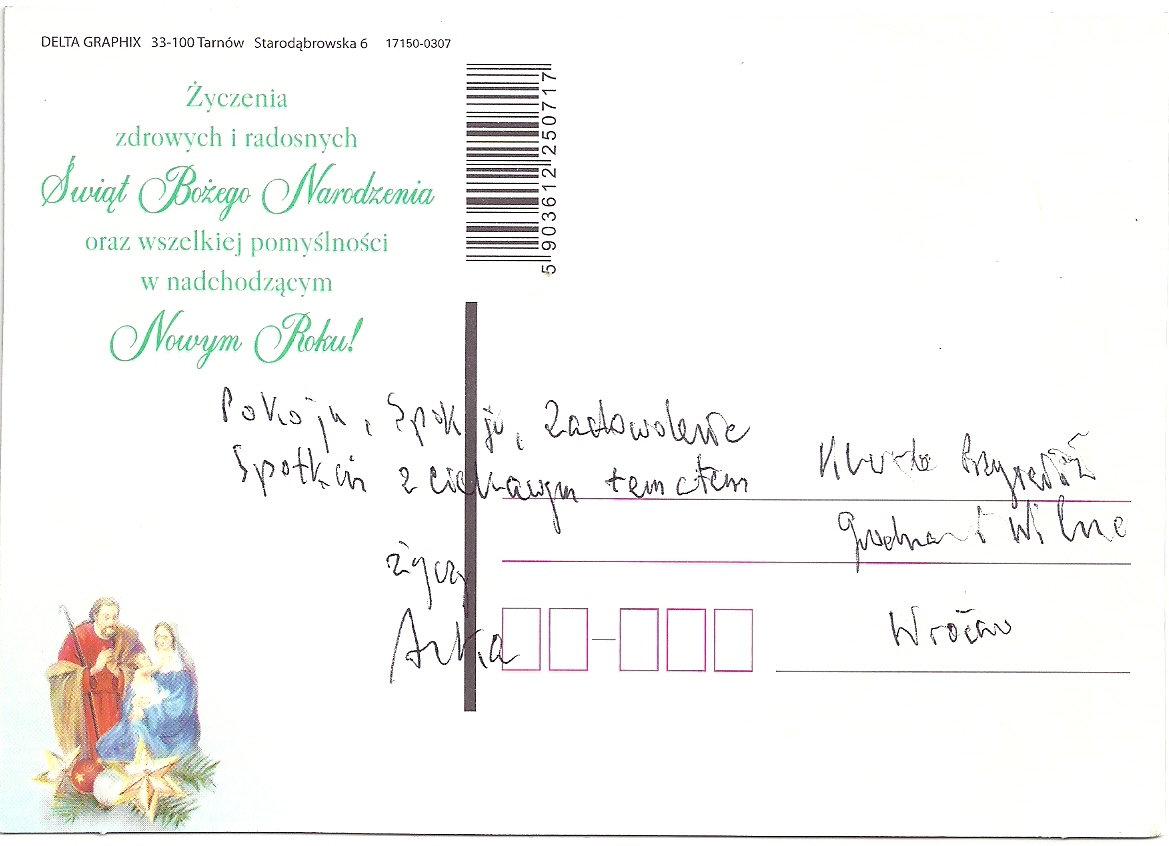 DELTA GRAPHIX 33-100 Tarnów Starodąbrowska 6 17150-0307
Życzenia
zdrowych i radosnych
Świąt Bożego Narodzenia
oraz wszelkiej pomyślności
w nadchodzącym
Nowym Roku!
5 903612 250717
Pokoju, Spokoju, Zadowolenie
Spotkań z ciekawym tematem
życzy
Arka
Wilno
Wrocław